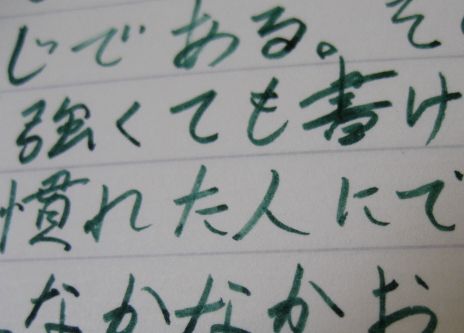 じである。そ
強くても書け
慣れた人にで
なかなかお